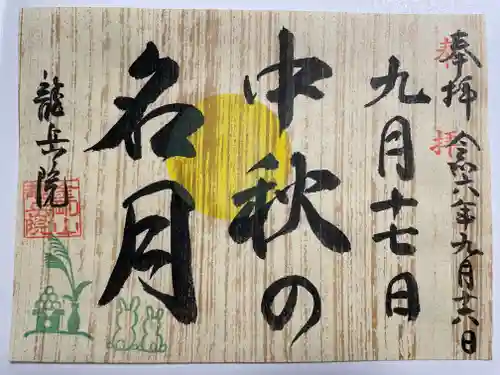 奉拝
令和六年九月十六日
九月十七日
中秋の
名月
龍岳院